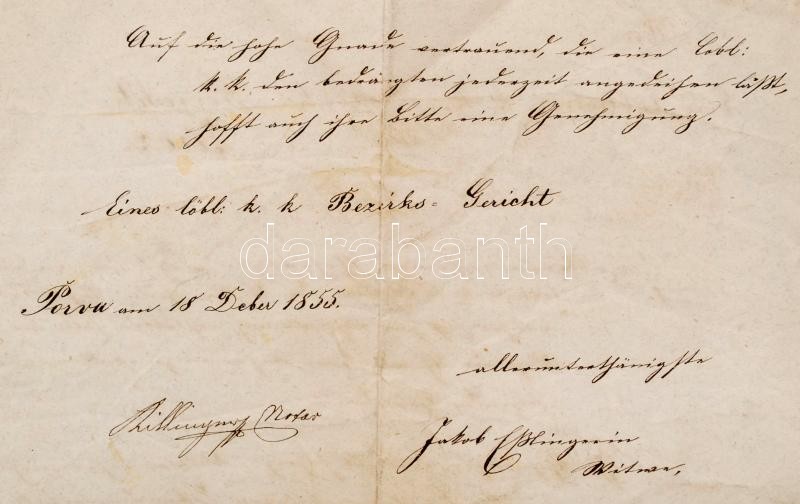 Auf die hohe Gnade vertrauend, die eine löbl:
k. k. den bedrängten jederzeit angedeihen läßt,
hofft auch ihre Bitte eine Genehmigung.
Eines löbl: k. k Bezirks= Gericht
darabanth
Porva am 18 Deber 1855.
allerunterthänigste
Killinger Notar
Jakob Eßlingerin
Witwe,